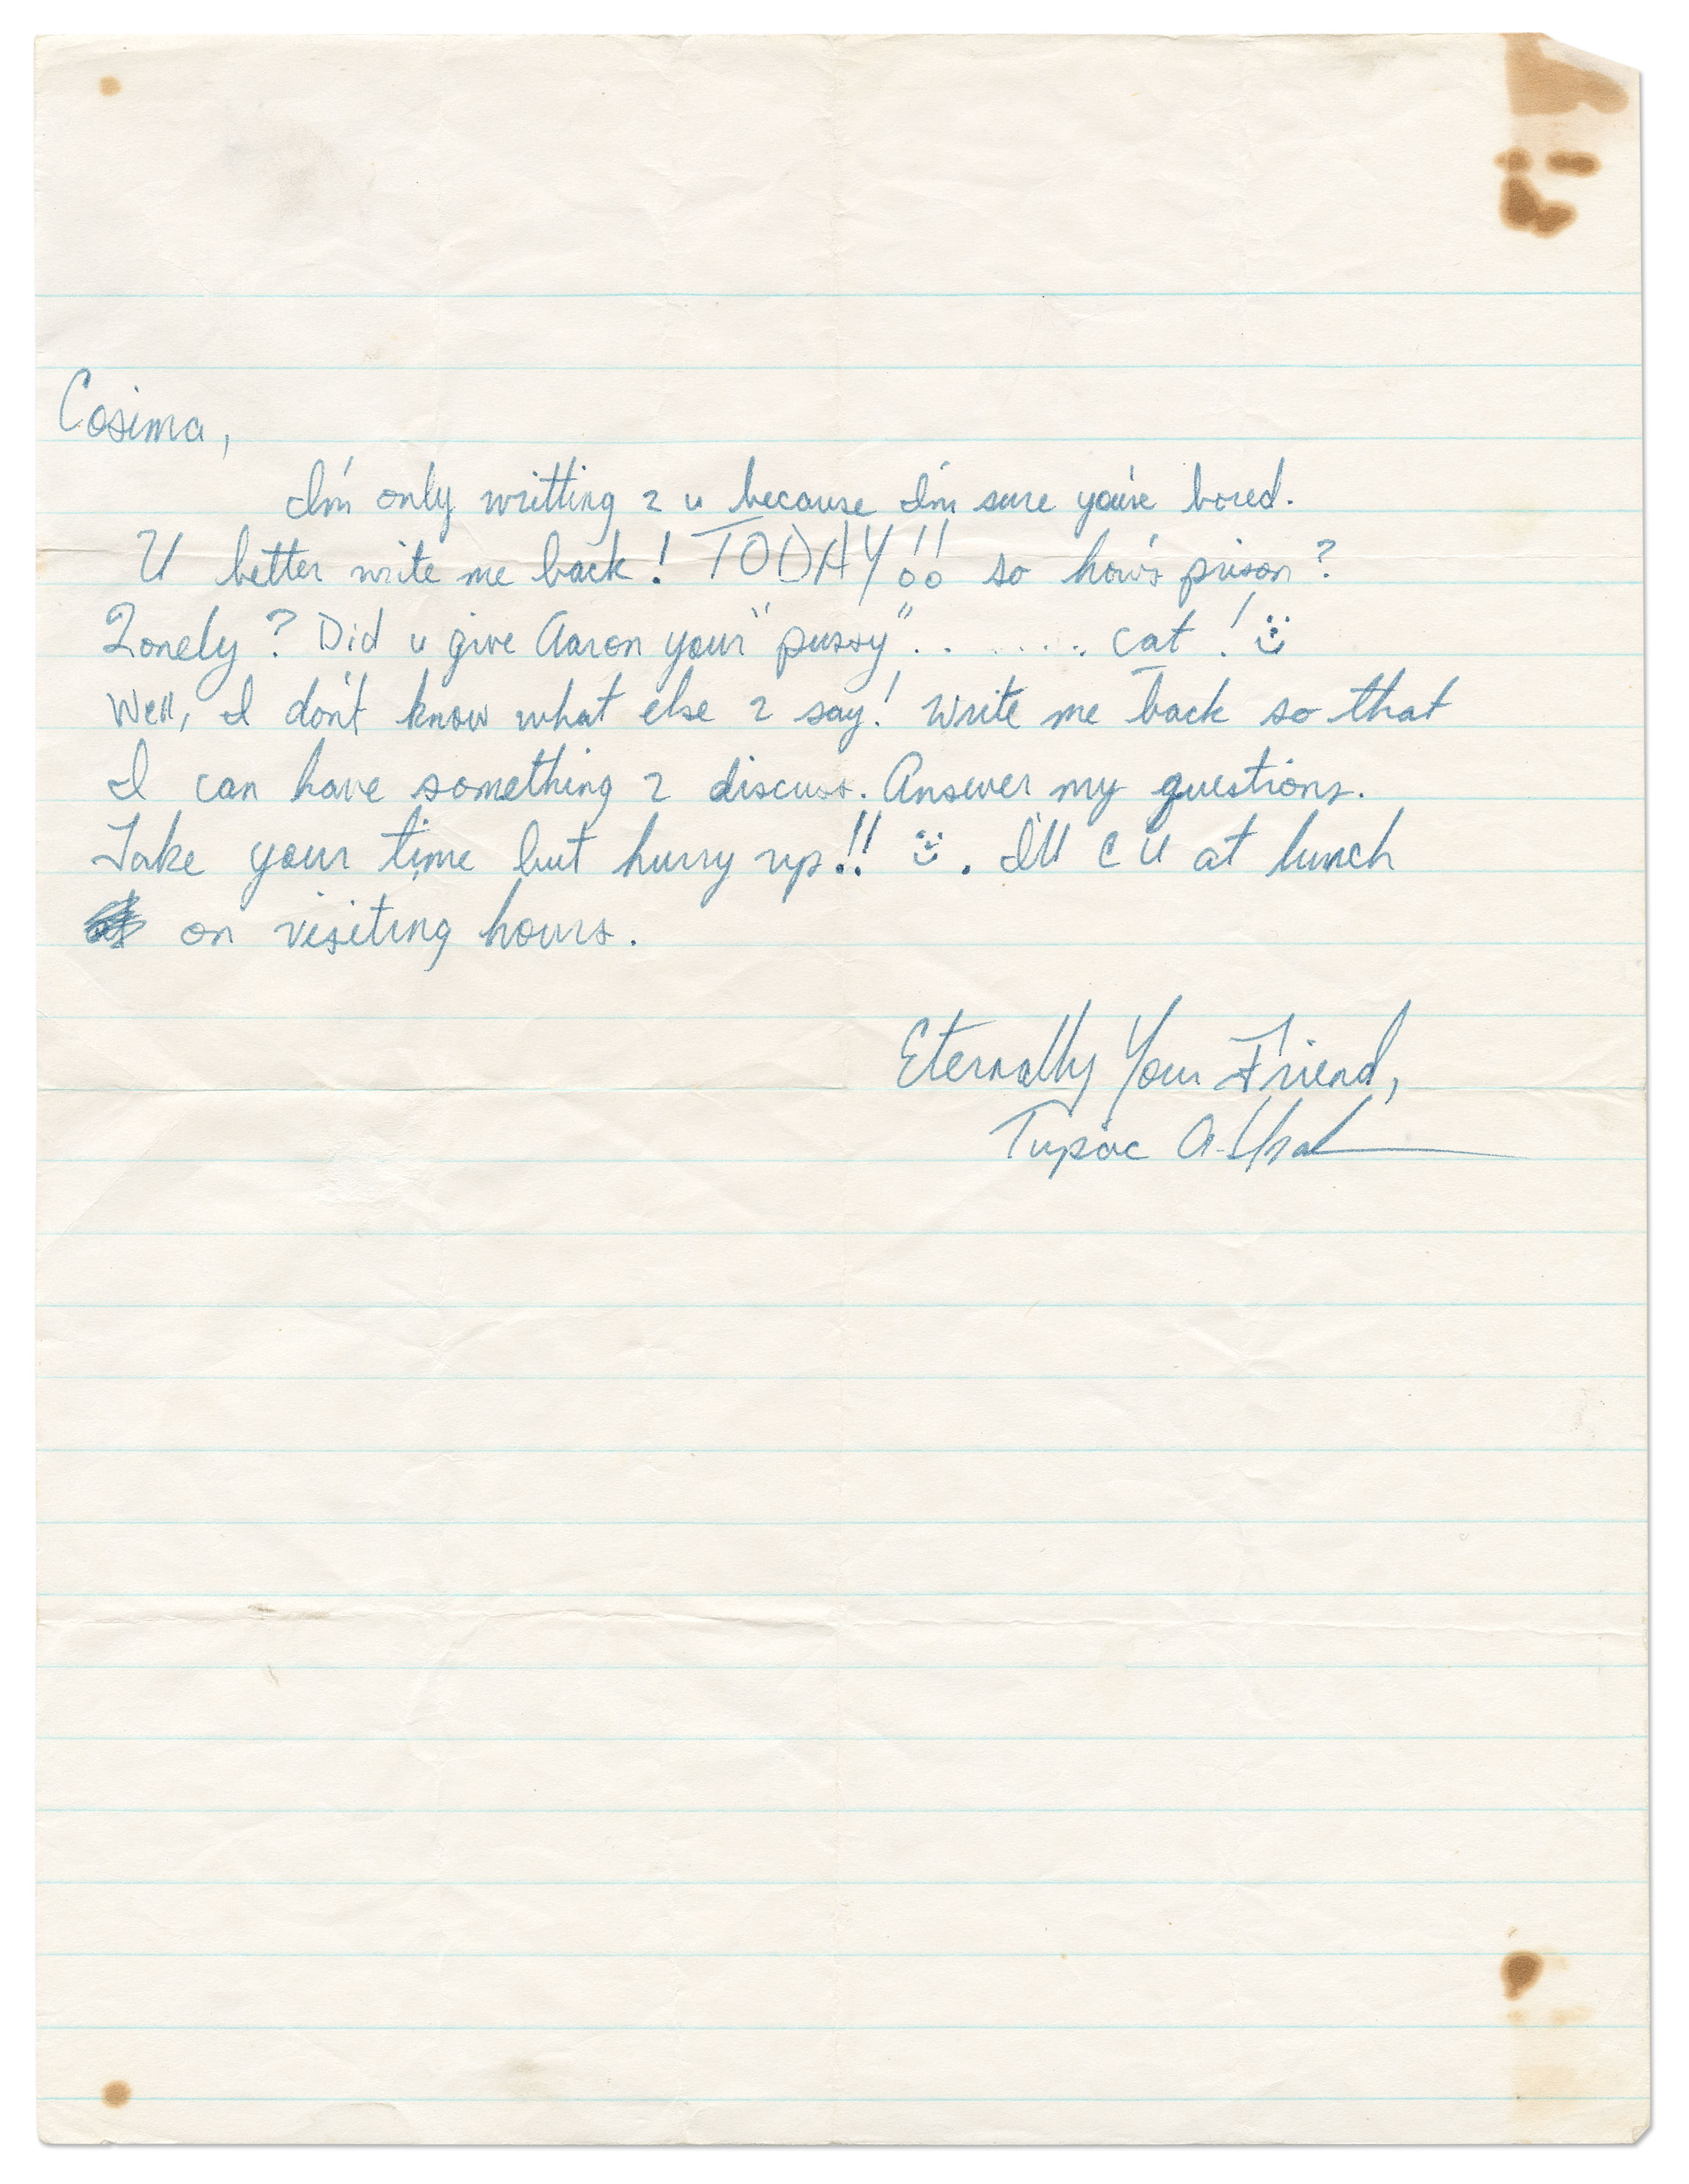 Cosima,
I'm only writting 2 u because I'm sure you're bored.
U better write me back! TODAY!! so how's prison?
Lonely? Did u give Aaron your "pussy". . . . . . . . cat!
Well, I don't know what else 2 say! Write me back so that
I can have something 2 discuss. Answer my questions.
Take your time but hurry up!! . I'll C U at lunch
on visiting hours.
Eternally Your Friend,
Tupac A.